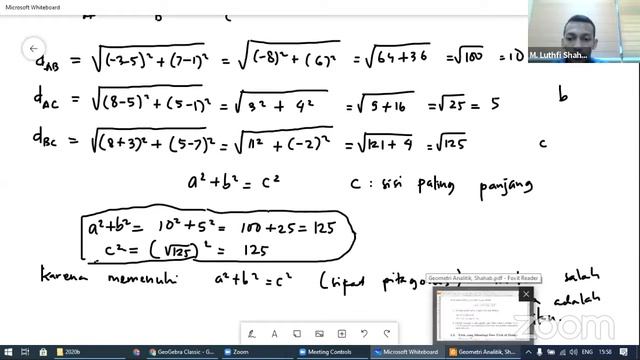 Microsoft Whiteboard
d_AB = √(-3-5)² + (7-1)² = √(-8)² + (6)² = √64+36 = √100 = 10
M. Luthfi Shah...
d_AC = √(8-5)² + (5-1)² = √3² + 4² = √9+16 = √25 = 5 b
d_BC = √(8+3)² + (5-7)² = √11² + (-2)² = √121+4 = √125 c
a² + b² = c² c : sisi paling panjang
a²+b² = 10² + 5² = 100 + 25 = 125
c² = (√125)² = 125
karena memenuhi a²+b² = c² (sifat pitagoras) salah
adalah
Geometri Analitik, Shahab.pdf - Foxit Reader
zoom
2020b
GeoGebra Classic - G...
Zoom
Meeting Controls
Microsoft Whiteboard
Geometri Analitik, Sh...
ENG
15:58